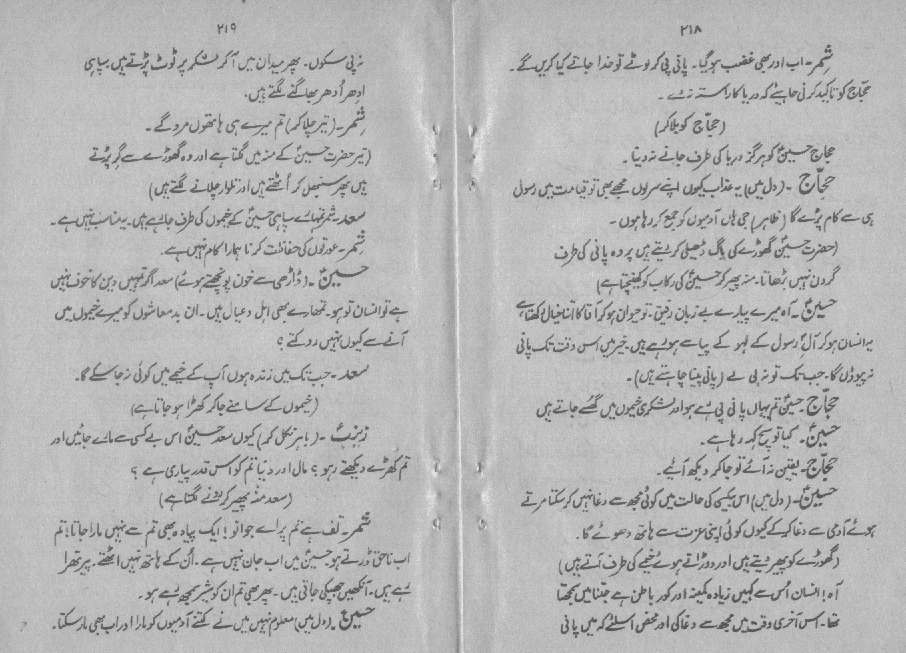 ۲۱۸
شمر۔ اب اور بھی غضب ہوگیا۔ پانی پی کر لوٹے تو خدا جانے کیا کریں گے۔
حجّاج کو تاکید کرنی چاہیے کہ دریا کا راستہ نہ دے۔
(حجّاج کو بلا کر)
حجاج حسینؑ کو ہرگز دریا کی طرف جانے نہ دینا۔
حجّاج۔ (دل میں) یہ عذاب کیوں اپنے سر لوں مجھے بھی تو قیامت میں رسول
ہی سے کام پڑے گا (ظاہر) جی ہاں آدمیوں کو جمع کر رہا ہوں۔
(حضرت حسینؑ گھوڑے کی باگ ڈھیلی کر دیتے ہیں پر وہ پانی کی طرف
گردن نہیں بڑھاتا۔ منہ پھیر کر حسینؑ کی رکاب کو کھینچتا ہے)
حسینؑ۔ آہ میرے پیارے بے زبان رفیق۔ تو حیوان ہو کر آقا کا اتنا خیال رکھتا ہے
یہ انسان ہو کر آلِ رسول کے لہو کے پیاسے ہو رہے ہیں۔ خیر میں اس وقت تک پانی
نہ پیوؤں گا۔ جب تک تو نہ پی لے (پانی پینا چاہتے ہیں)۔
حجّاج۔ حسینؑ تم یہاں پانی پی رہے ہو اور لشکری خیموں میں گھسے جاتے ہیں
حسینؑ۔ کیا تو سچ کہہ رہا ہے۔
حجّاج۔ یقین نہ آئے تو جا کر دیکھ آئیے۔
حسینؑ۔ (دل میں) اس بیکسی کی حالت میں کوئی مجھ سے دغا نہیں کر سکتا مرتے
ہوئے آدمی سے دغا کر کے کیوں کوئی اپنی عزت سے ہاتھ دھوئے گا۔
(گھوڑے کو پھیر دیتے ہیں اور دوڑاتے ہوئے خیمے کی طرف آتے ہیں)
آہ! انسان اُس سے کہیں زیادہ کمینہ اور کور باطن ہے جتنا میں سمجھتا
تھا۔ اس آخری وقت میں مجھ سے دغا کی اور محض اسلئے کہ میں پانی
۲۱۹
نہ پی سکوں۔ پھر میدان میں آ کر لشکر پر ٹوٹ پڑتے ہیں سپاہی
اِدھر اُدھر بھاگنے لگتے ہیں۔
شمر۔ (تیر چلا کر) تم میرے ہی ہاتھوں مرو گے۔
(تیر حضرت حسینؑ کے منہ میں لگتا ہے اور وہ گھوڑے سے گر پڑتے
ہیں پھر سنبھل کر اُٹھتے ہیں اور تلوار چلانے لگتے ہیں)
سعد۔ شمر تمہارے سپاہی حسینؑ کے خیموں کی طرف جا رہے ہیں۔ یہ مناسب نہیں ہے۔
شمر۔ عورتوں کی حفاظت کرنا ہمارا کام نہیں ہے۔
حسینؑ۔ (داڑھی سے خون پونچھتے ہوئے) سعد اگر تمہیں دین کا خوف نہیں
ہے تو انسان تو ہو۔ تمہارے بھی اہل و عیال ہیں۔ ان بدمعاشوں کو میرے خیموں میں
آنے سے کیوں نہیں روکتے؟
سعد۔ جب تک میں زندہ ہوں آپ کے خیمے میں کوئی نہ جا سکے گا۔
(خیموں کے سامنے جا کر کھڑا ہو جاتا ہے)
زینبؑ۔ (باہر نکل کر) کیوں سعد حسینؑ اس بے کسی سے مارے جائیں اور
تم کھڑے دیکھتے رہو؟ مال اور دنیا تم کو اس قدر پیاری ہے؟
(سعد منہ پھیر کر رونے لگتا ہے)
شمر۔ تف ہے تم پر اے جوانو! ایک پیادہ بھی تم سے نہیں مارا جاتا! تم
اب ناحق ڈرتے ہو۔ حسینؑ میں اب جان نہیں ہے۔ اُن کے ہاتھ نہیں اٹھتے۔ پیر تھرا
رہے ہیں۔ آنکھیں جھپکی جاتی ہیں۔ پھر بھی تم ان کو شیر سمجھ رہے ہو۔
حسینؑ۔ (دل میں) معلوم نہیں میں نے کتنے آدمیوں کو مارا اور اب بھی مار سکتا۔